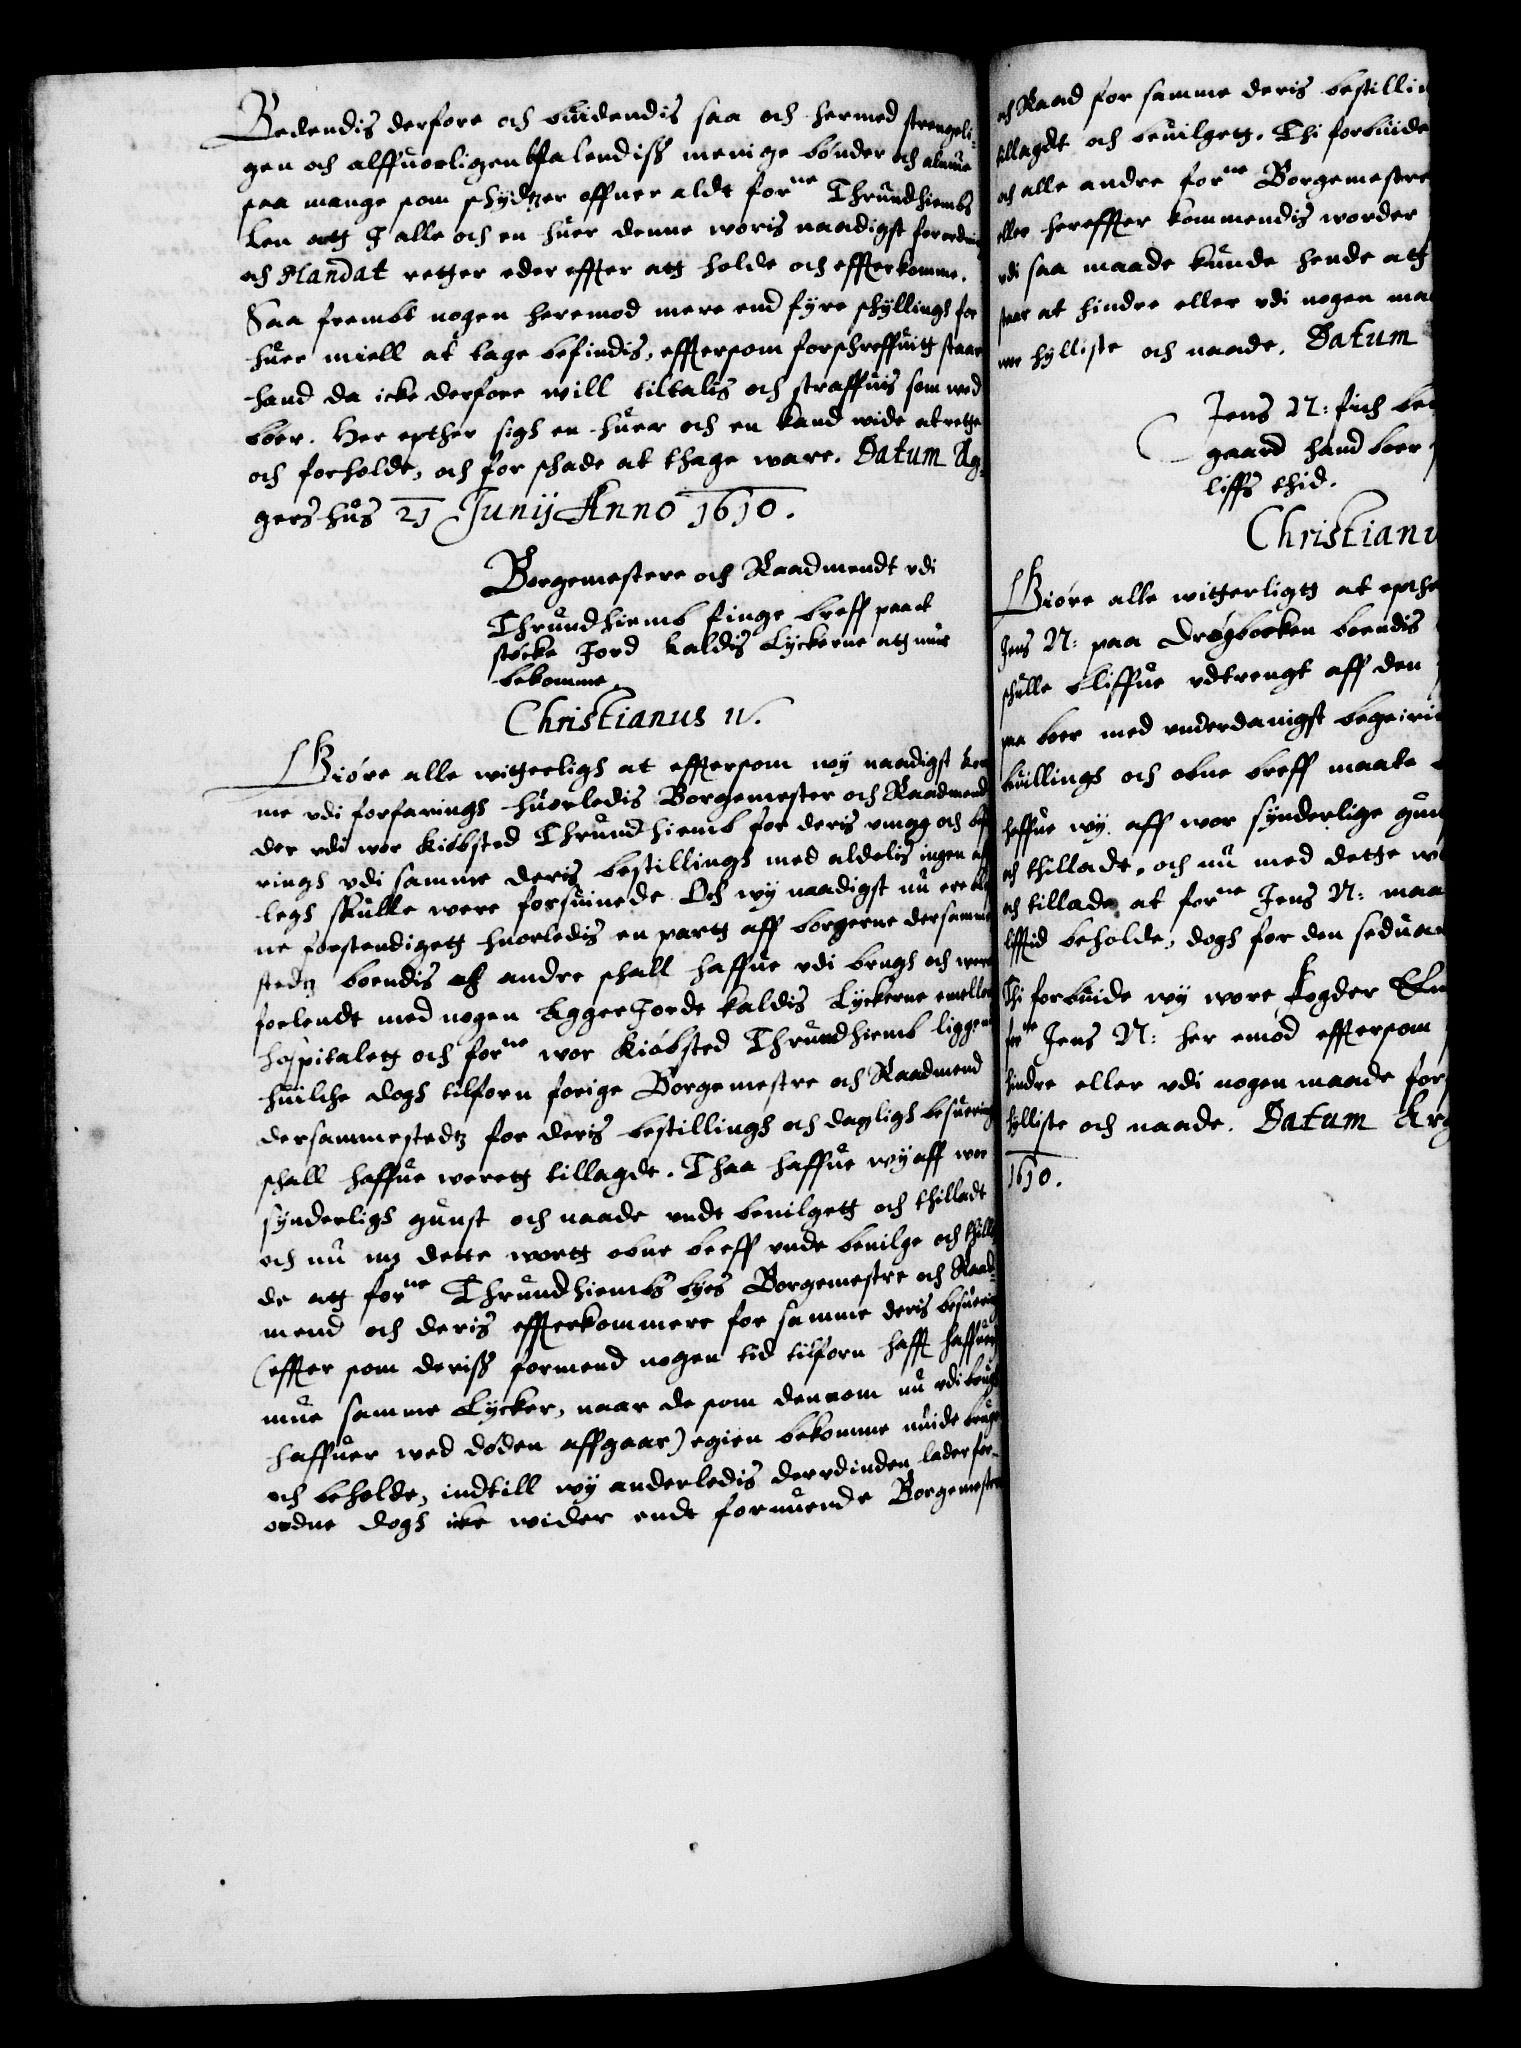 Bedendis derfore och biudendis saa och hermed strengeli-
gen och alffuorligen befalendiss menige bønder och almue
saa mange som schydtzer offuer aldt forne Thrundhiembs
Len att I alle och en huer denne woris naadigst forordni
och Mandat retter eder effter att holde och effterkomme.
Saa frembt nogen heremod mere end fyre schyllings for
huer miell at tage befindis, effttersom forschreffuitt staar
hand da icke derfore will tiltalis och straffuis som ved
bøer. Her epther sigh en huer och en kand wide at rette
och forholde, och for schade at thage ware. Datum Ag-
gershus 21 Junij Anno 1610.
Borgemestere och Raadmendt vdi
Thrundhiemb finge breff paa et
støcke Jord kaldis Lyckerne att mue
bekomme.
Christianus 4.
Giøre alle witterligh at efftersom wy naadigst kom
me vdi forfaringh huorledis Borgemester och Raadmend
der vdi wor Kiøbsted Thrundhiemb for deris vmag och besue
ringh vdi samme deris bestillingh med aldelis ingen aff
legh skulle were forsuinede. Och wy naadigst nu ere ble
ne forstendigett huorledis en partt aff borgerne dersamme
stedtz boendis och andre schall haffue vdi brugh och were
forlendt med nogen Agger Jorde kaldis Lyckerne emellem
Hospitalett och forne wor Kiøbsted Thrundhiemb liggend
huilche dogh tilforn forige Borgemestre och Raadmend
dersammestedtz for deris bestillingh och dagligh besuering
schall haffue werett tillagde. Thaa haffue wy aff wor
synderligh gunst och naade vndt beuilgett och thilladt
och nu mz dette wortt obne breff vnde beuilge och thilla
de att forne Thrundhiembs byes Borgemestre och Raad-
mend och deris effterkommere for samme deris besuering
(effter som deriss formend nogen tid tilforn hafft haffuer)
mue samme Lycker, naar de som dennom nu vdi brugh
haffuer wed døden affgaar) egien bekomme niude bruge
och beholde, indtill wy anderledis der vdinden lader for-
ordne dogh icke wider endt fornuerde Borgemestre
och Raad for samme deris bestillin
tillagdt och beuilgett. Thi forbiude
och alle andre forne Borgemestre
eller hereffter kommendis worder
vdi saa maade kunde hende att
staar at hindre eller vdi nogen ma
wor hylliste och naade. Datum
Jens N: fich be
gaard hand boer
liffs thid.
Christianu
Giøre alle witterligtt at epthe
Jens N: paa Drøgbocken boendis
schulle bliffue vdtrengt aff den
paa boer med vnderdanigst begeiri
beuillingh och obne breff maatte
haffue wy aff wor synderlige gun
och thilladt, och nu med dette w
och tillade at forne Jens N: maa
lifftid beholde, dogh for den sedua
Thi forbiude wy wore fogder Em
forne Jens N: her emod efftersom
hindre eller vdi nogen maade for
hylliste och naade. Datum Ag
1610.